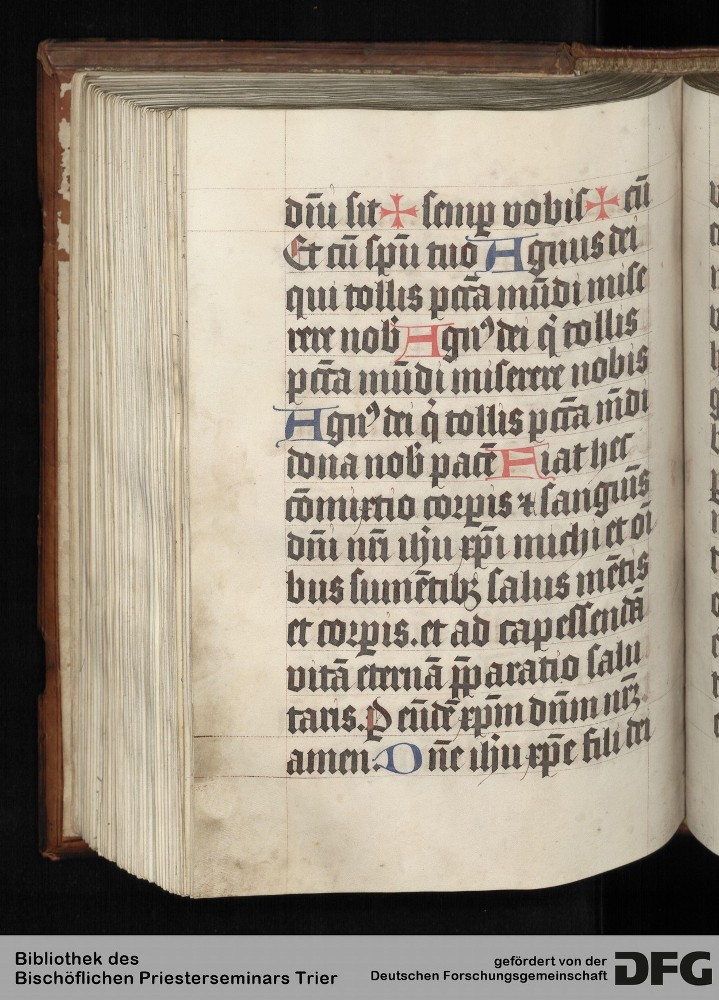 dn̄i sit ✠ semꝑ vobis ✠ cū
Et cū sp̄u tuo Agnus dei
qui tollis pctā mūdi mise
rere nob̄ Agnꝰ dei q̇ tollis
pctā mūdi miserere nobis
Agnꝰ dei q̇ tollis pctā mūdi
dona nob̄ pacē Fiat hec
cōmixtio corꝑis ⁊ sanguīs
dn̄i nr̄i ihu xp̄i michi et oī
bus sumētibꝫ salus mētis
et corꝑis. et ad capessendā
vitā eternā p̄paratio salu
taris. P eundē xp̄m dn̄m nr̄ꝫ.
amen. Dn̄e ihu xp̄e fili dei
Bibliothek des
Bischöflichen Priesterseminars Trier
gefördert von der
Deutschen Forschungsgemeinschaft DFG